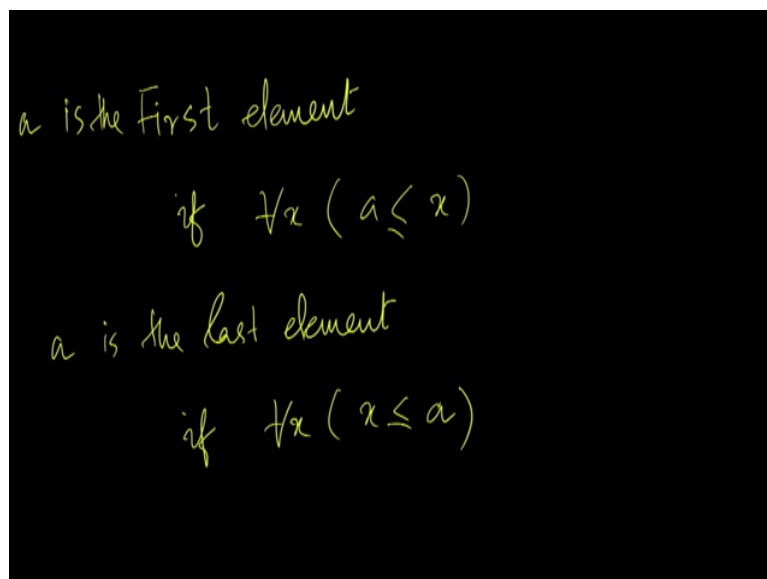 a is the First element
if ∀x ( a ≤ x )
a is the last element
if ∀x ( x ≤ a )